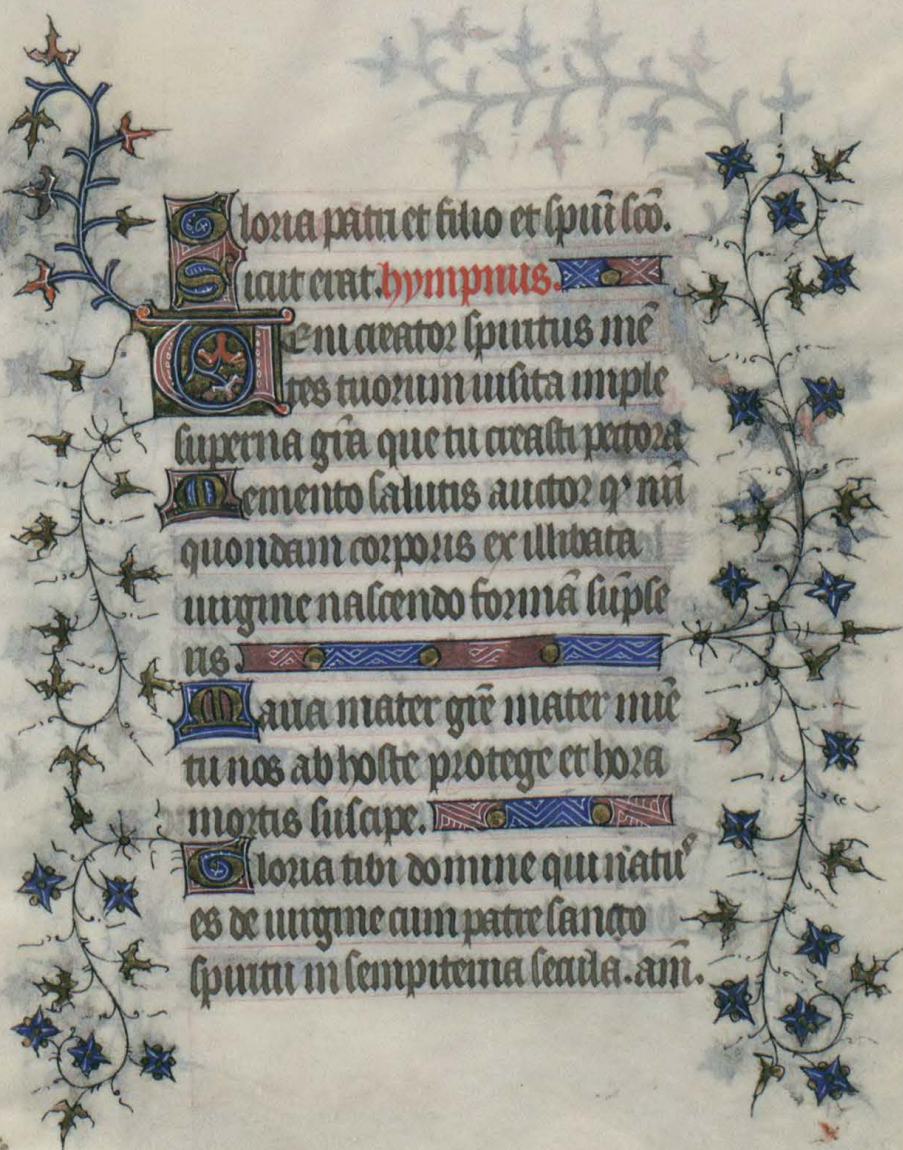 Gloria patri et filio et spiũ scõ.
Sicut erat. hympnus.
Ueni creator spiritus mẽ
tes tuorum uisita imple
superna grã que tu creasti pectora
Memento salutis auctor qͥ nr̃i
quondam corporis ex illibata
uirgine nascendo formã sũpse
ris.
Maria mater grẽ mater miẽ
tu nos ab hoste protege et hora
mortis suscipe.
Gloria tibi domine qui natuꝰ
es de uirgine cum patre sancto
spiritu in sempiterna secula. am̃.